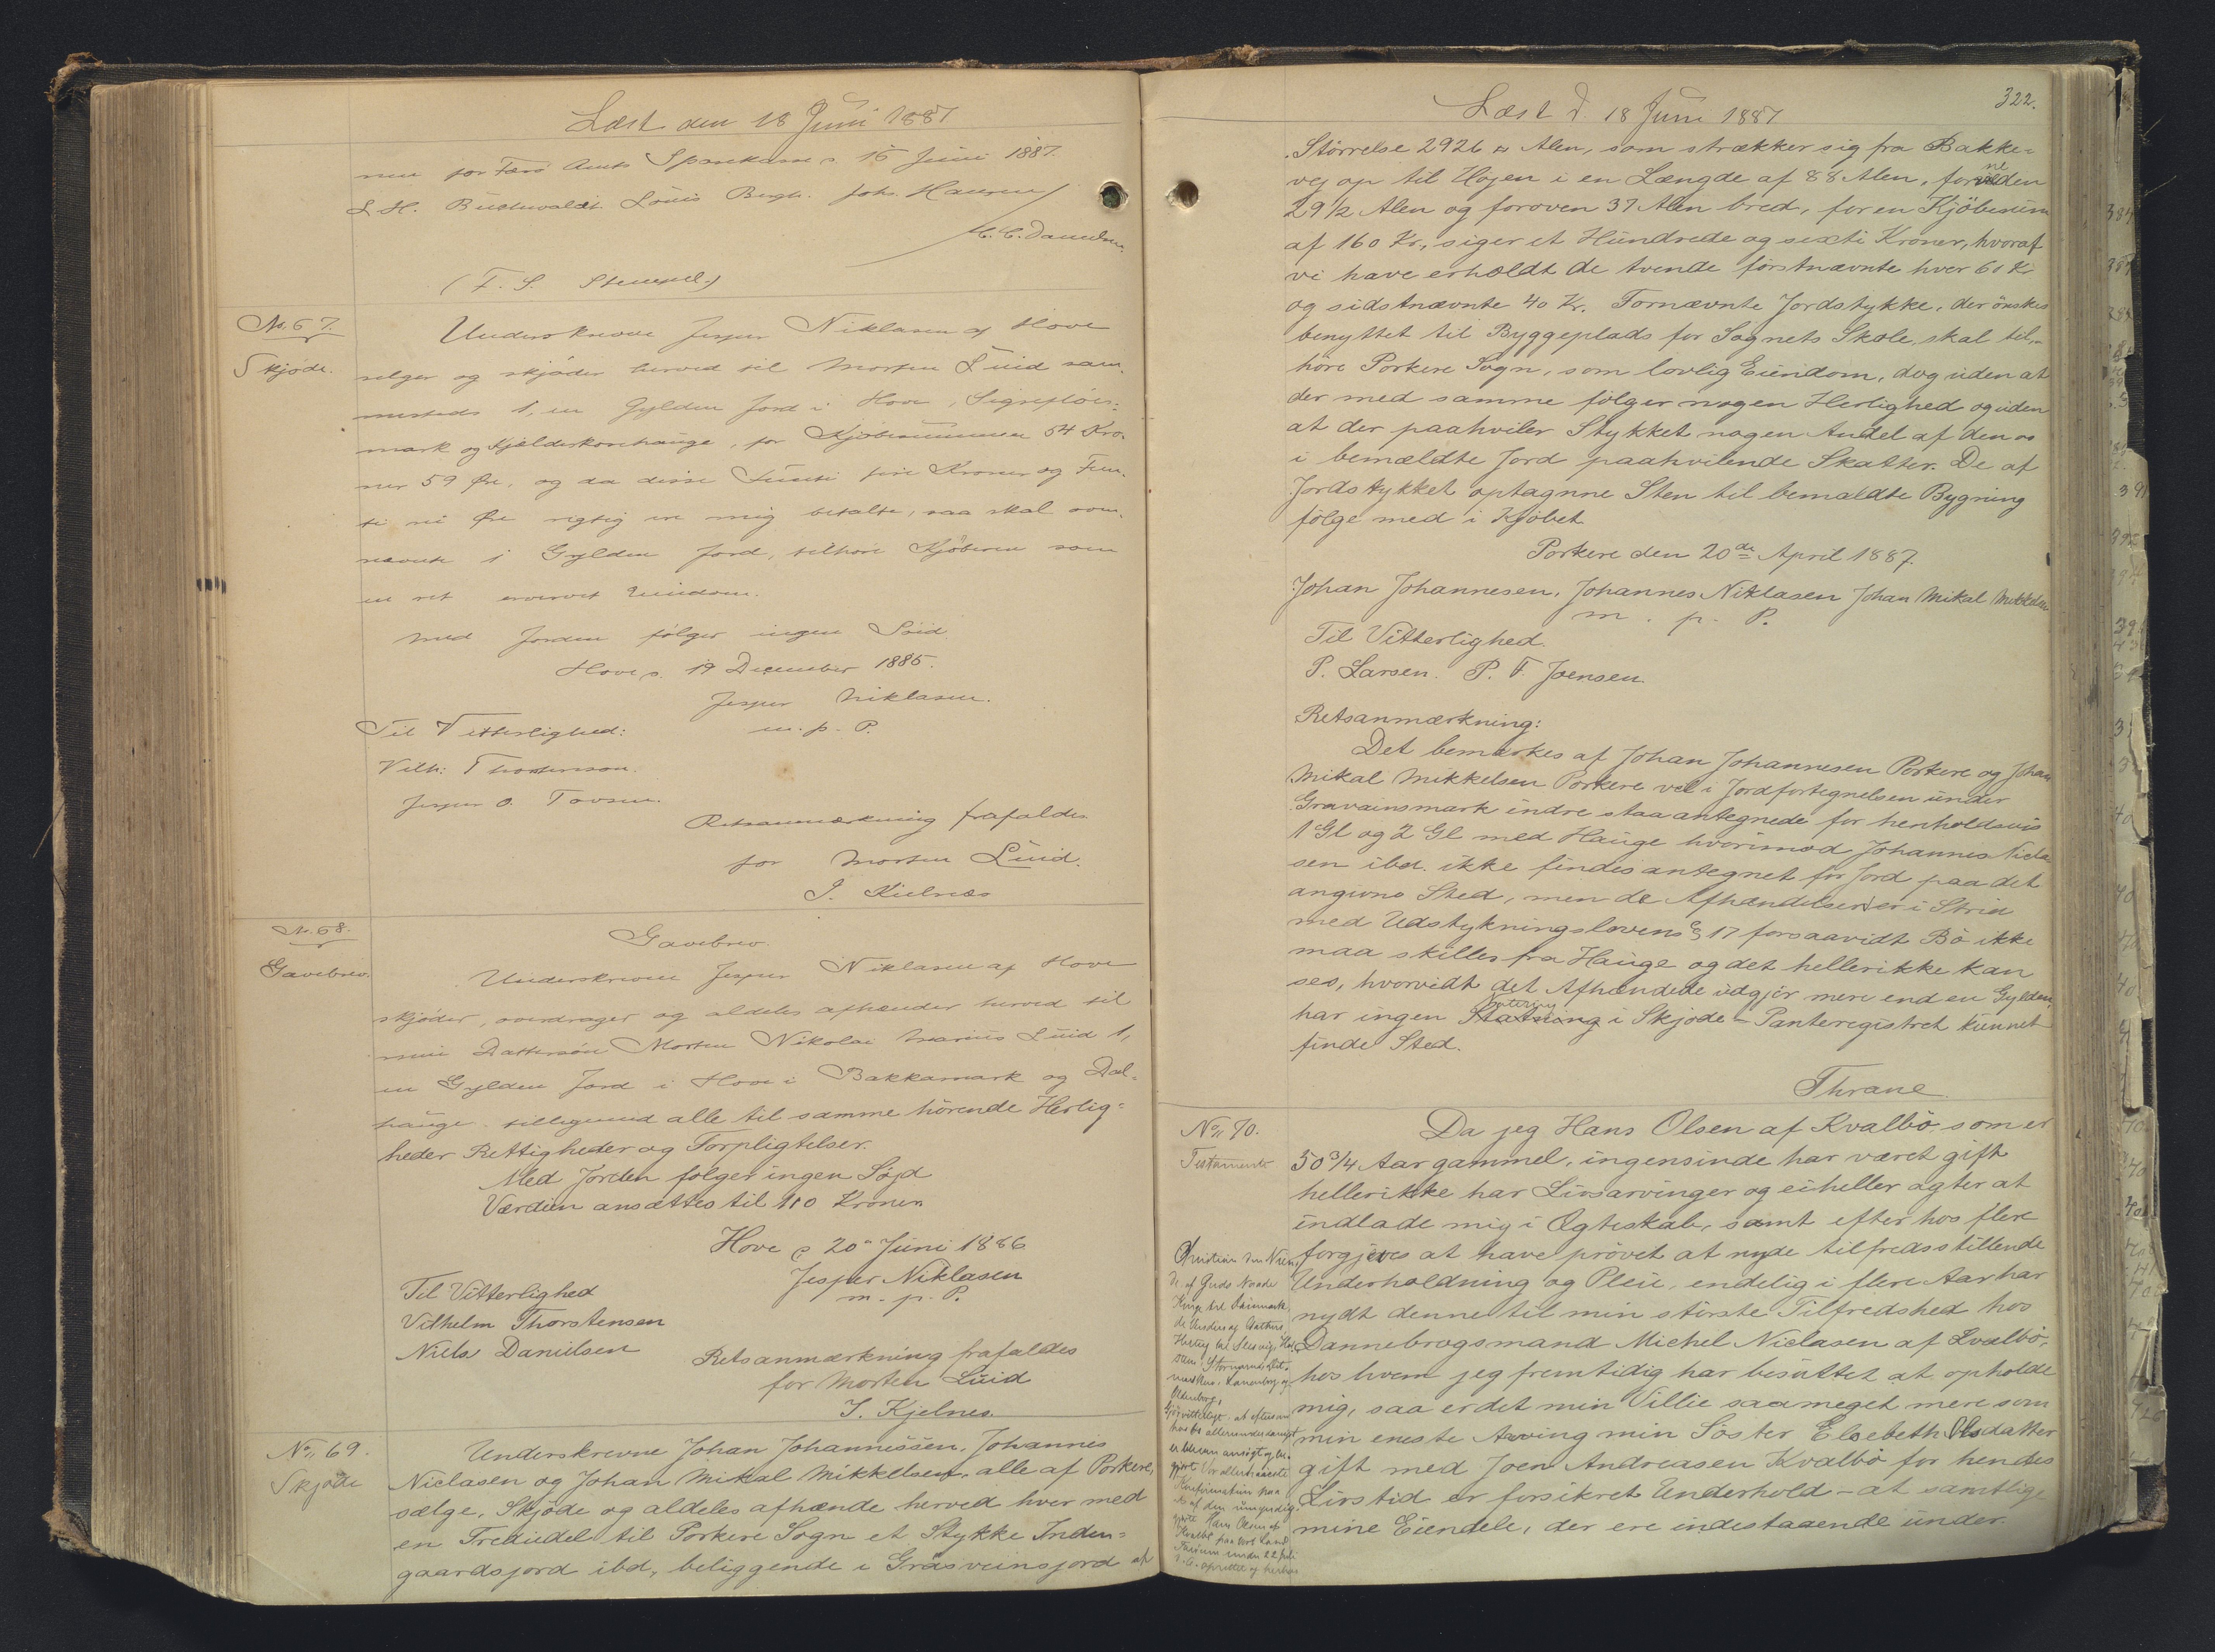 Læst den 18 Juni 1887
nen for Færø Amts Sparekasse d. 15 Juni 1887.
L. H. Buchwaldt Louis Bergh. Joh. Hansen
C. C. Danielsen
(F. S. Stempel.)
No. 67.
Skjøde.
Underskrevne Jesper Niklasen af Hove
selger og skjøder herved til Morten Luid sam-
mesteds 1, en Gylden Jord i Hove,
mark og Kjelderkorshauge, for Kjøbesummen 54 Kro-
ner 59 Øre, og da disse Femti fire Kroner og Fem-
ti ni Øre rigtig ere mig betalte, saa skal oven-
nævnte 1 Gylden Jord, tilhøre Kjøberen som
en ret erververt Eiendom.
Med Jorden følger ingen Söid.
Hove, d. 19 December 1885.
Jesper Niklasen.
m. p. P.
Til Vitterlighed:
Vilh: Thorstensson.
Jesper O. Tovsen.
Retsanmærkning frafaldes
for Morten Luid.
J. Kielnæs
No. 68.
Gavebrev.
Gavebrev.
Underskrevne Jesper Niklasen af Hove
skjøder, overdrager og aldeles afhænder herved til
min Dattersøn Morten Nikolai Marius Luid 1,
en Gylden Jord i Hove i Bakkamark og Dal-
hauge tilligemed alle til samme hörende Herlig-
heder Rettigheder og Forpligtelser.
Med Jorden følger ingen Söjd
Værdien ansættes til 110 Kroner
Hove d 20 Juni 1886
Jesper Niklasen
m. p. P.
Til Vitterlighed
Vilhelm Thorstensen
Niels Danielsen
Retsanmærkning frafaldes
for Morten Luid
J. Kjelnes.
No. 69.
Skjøde
Underskrevne Johan Johannessen, Johannes
Niclasen og Johan Mikal Mikkelsen, alle af Porkere,
sælge, Skjöde og aldeles afhænde herved hver med
en Trediedel til Porkere Sogn et Stykke Inden-
gaardsjord ibd, beliggende i Gräsveinsjord af
322.
Læst d. 18 Juni 1887
Störrelse 2926 □ Alen, som strækker sig fra Bakke-
vej op til Höjen i en Længde af 88 Alen, forneden
29 1/2 Alen og foroven 37 Alen bred, for en Kjöbesum
af 160 Kr., siger et Hundrede og sexti Kroner, hvoraf
vi have erholdt de tvende förstnævnte hver 60 Kr
og sidstnævnte 40 Kr. Fornævnte Jordstykke, der önskes
benyttet til Byggeplads for Sognets Skole, skal til-
höre Porkere Sogn, som lovlig Eiendom, dog uden at
der med samme fölger nogen Herlighed og uden
at der paahviler Stykket nogen Andel af den
i bemældte Jord paahvilende Skatter. De af
Jordstykket optagnne Sten til bemældte Bygning
fölge med i Kjöbet
Porkere den 20de April 1887.
Johan Johannesen, Johannes Niklasen Johan Mikal Mikkelsen
m. p. P.
Til Vitterlighed.
P. Larsen. P. F. Joensen.
Retsanmærkning:
Det bemærkes af Johan Johannesen Porkere og Johan
Mikal Mikkelsen Porkere vel i Jordfortegnelsen under
Gravainsmark indre staa antegnede for henholdsvis
1 Gl og 2 Gl med Hauge hvorimod Johannes Nicla-
sen ibd. ikke findes antegnet for Jord paa det
angivne Sted, men de Afhændelser er i Strid
med Udstykningslovens § 17 forsaavidt Bö ikke
maa skilles fra Hauge og det hellerikke kan
ses, hvorvidt det Afhændede udgjör mere end en Gylden,
har ingen Notering i Skjöde- Panteregistret kunnet
finde Sted.
Thrane
No. 70.
Testamente
Da jeg Hans Olsen af Kvalbö, som er
50 3/4 Aar gammel, ingensinde har været gift
hellerikke har Livsarvinger og eiheller agter at
indlade mig i Ægteskab, samt efter hos flere
forgjeves at have prövet at nyde tilfredsstillende
Underholdning og Pleie, endelig i flere Aar har
nydt denne til min störste Tilfredshed hos
Dannebrogsmand Michel Niclasen af Kvalbö,
hos hvem jeg fremtidig har besluttet at opholde
mig, saa er det min Villie saameget mere som
min eneste Arving min Söster Elsebeth Olsdatter
gift med Joen Andreasen Kvalbö for hendes
Livstid er forsikret Underhold - at samtlige
mine Eiendele, der ere indestaaende under
Christian den Nien-
de af Guds Naade
Konge til Danmark,
de Venders og Gothers,
Hertug til Slesvig, Hol-
sten, Stormarn, Dit-
marsken, Lauenborg og
Oldenborg,
Gjör vitterligt: at eftersom
hos Os allerunderdanigst
er bleven ansögt og be-
gjært Vor allernaadigste
Konfirmation paa
et af den umyndig-
gjorte Hans Olsen af
Kvalbö paa Vort Land
Færöerne under 22 Juli
oprettet og herhos